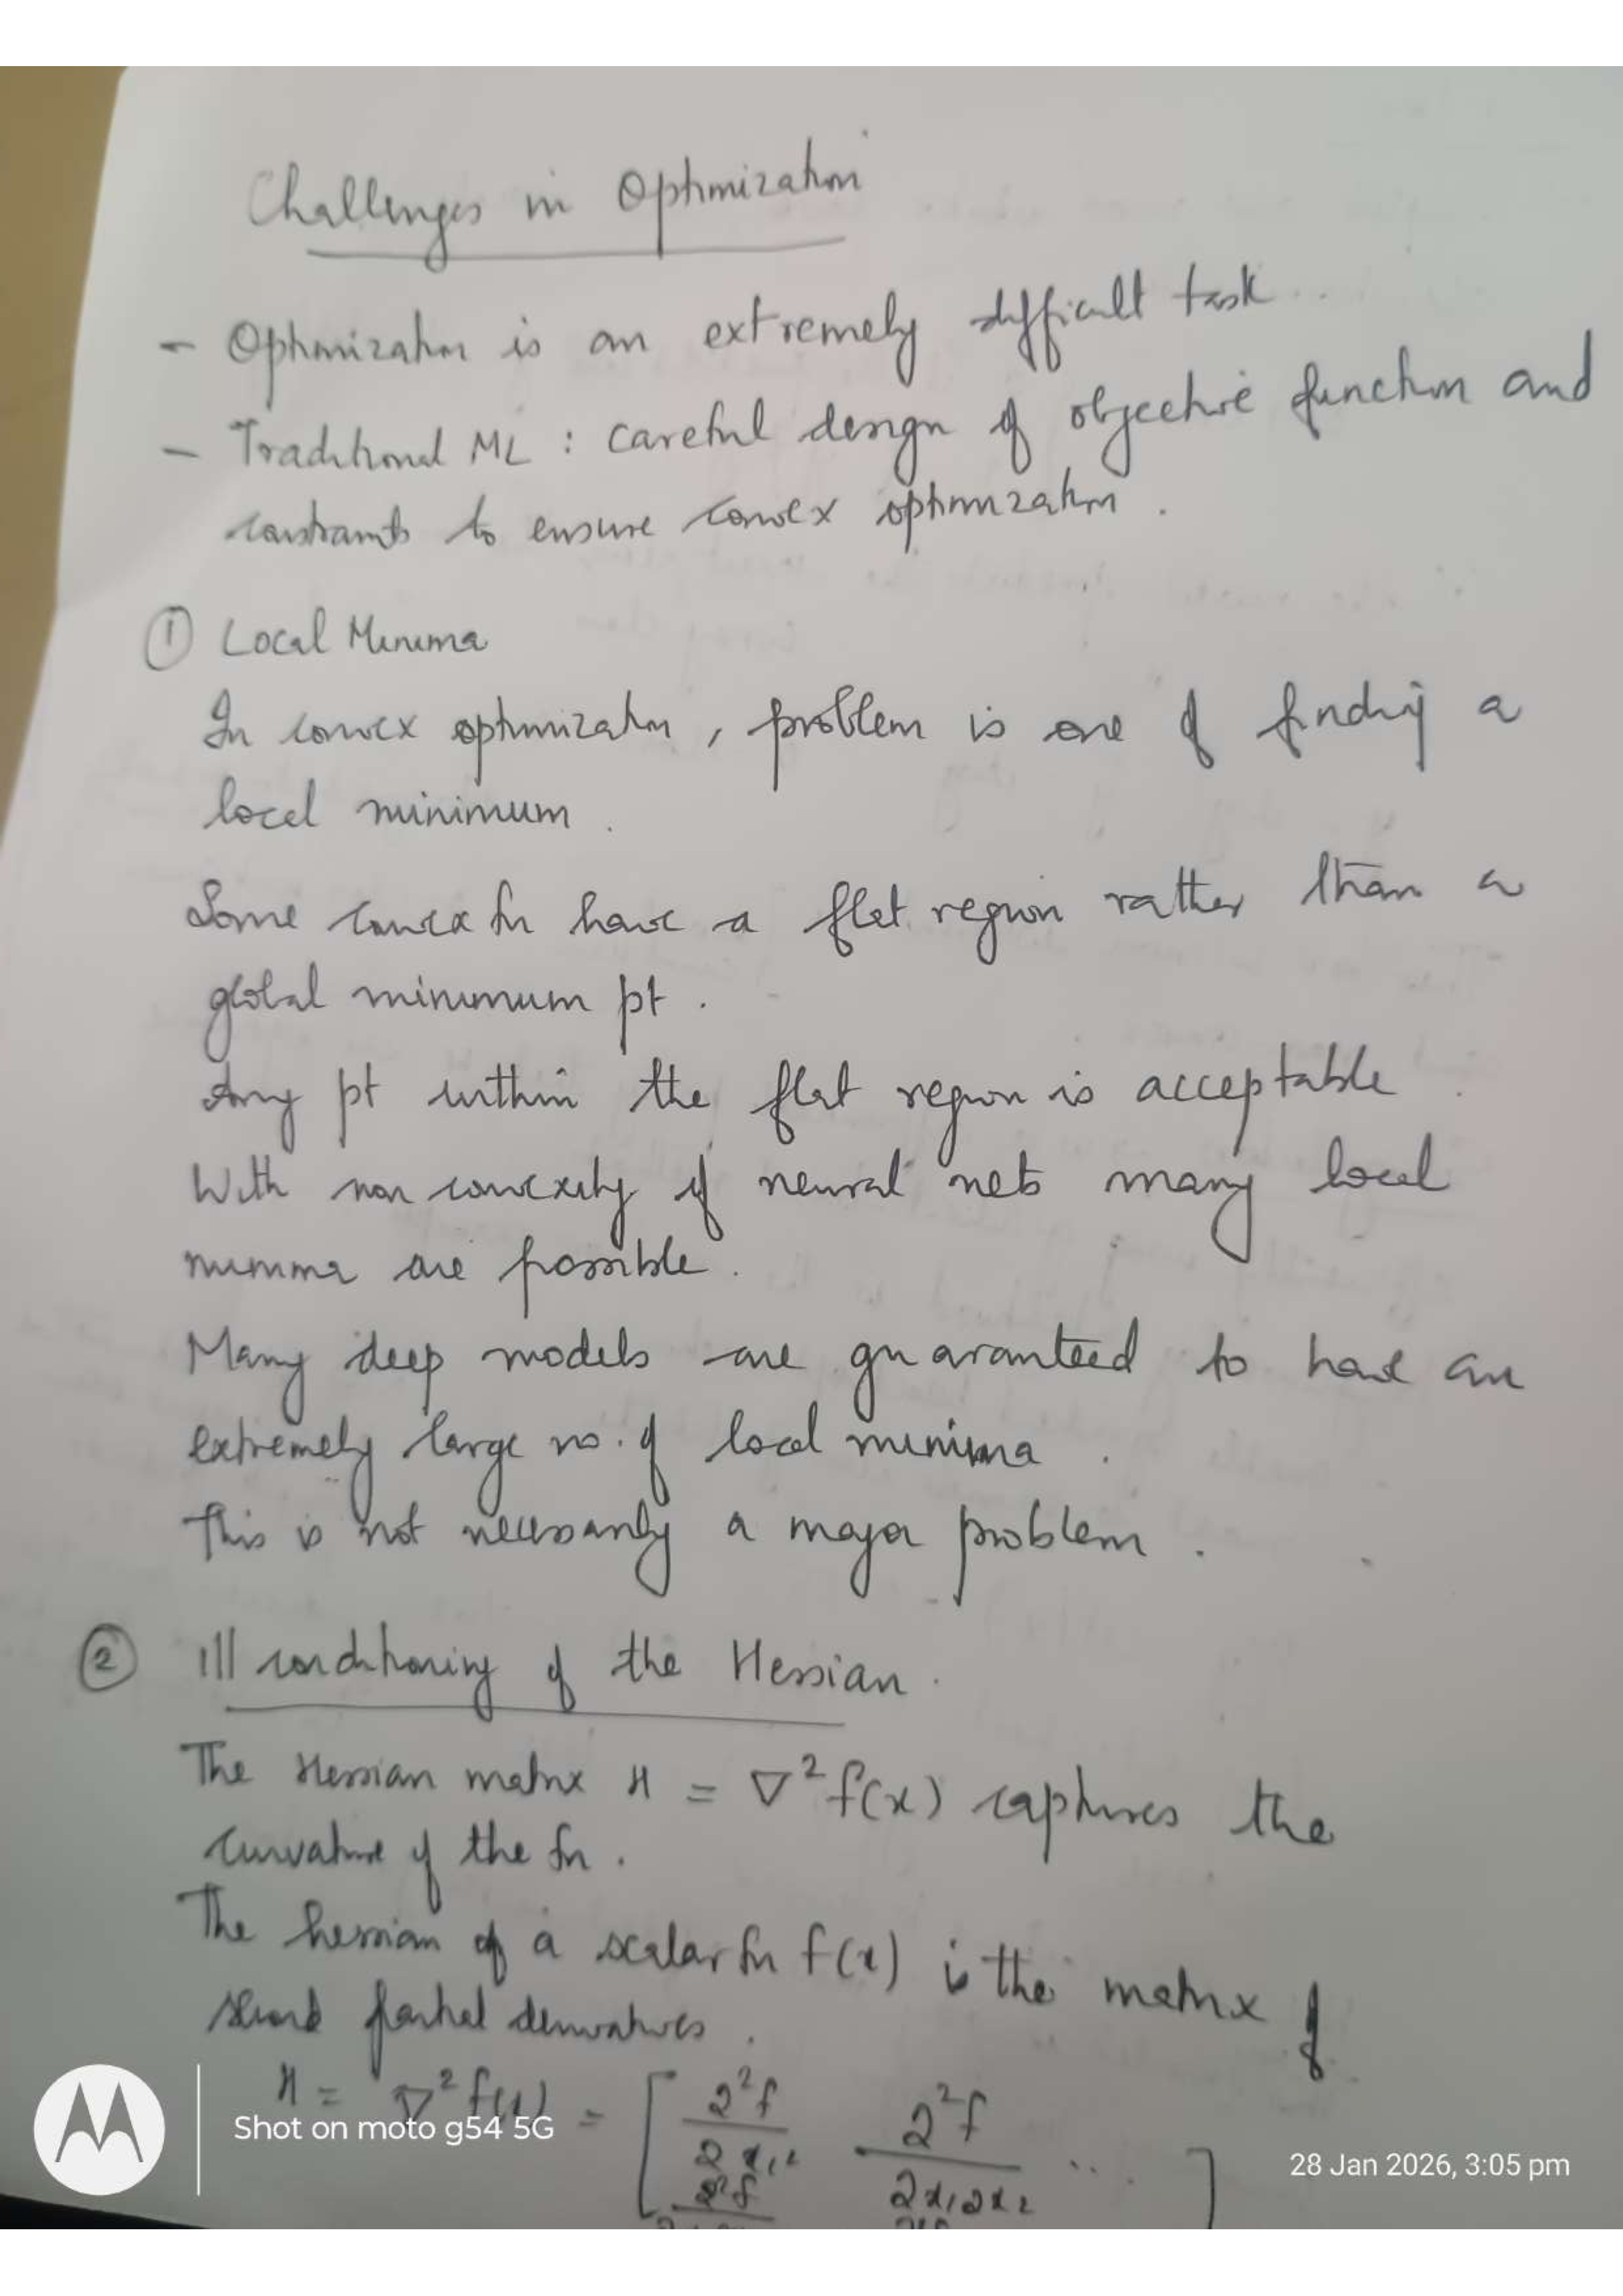 Challenges in Optimization
- Optimization is an extremely difficult task
- Traditional ML : careful design of objective function and
constraints to ensure convex optimization .
① Local Minima
In convex optimization , problem is one of finding a
local minimum .
Some convex fn have a flat region rather than a
global minimum pt .
Any pt within the flat region is acceptable .
With non convexity of neural nets many local
minima are possible .
Many deep models are guaranteed to have an
extremely large no. of local minima .
This is not necessarily a major problem .
② Ill conditioning of the Hessian .
The Hessian matrix H = ∇²f(x) captures the
curvature of the fn .
The hessian of a scalar fn f(x) is the matrix of
second partial derivatives .
H = ∇² f(x) = [ ∂²f / ∂x₁² ∂²f / ∂x₁∂x₂ ... ]
∂²f
Shot on moto g54 5G
28 Jan 2026, 3:05 pm